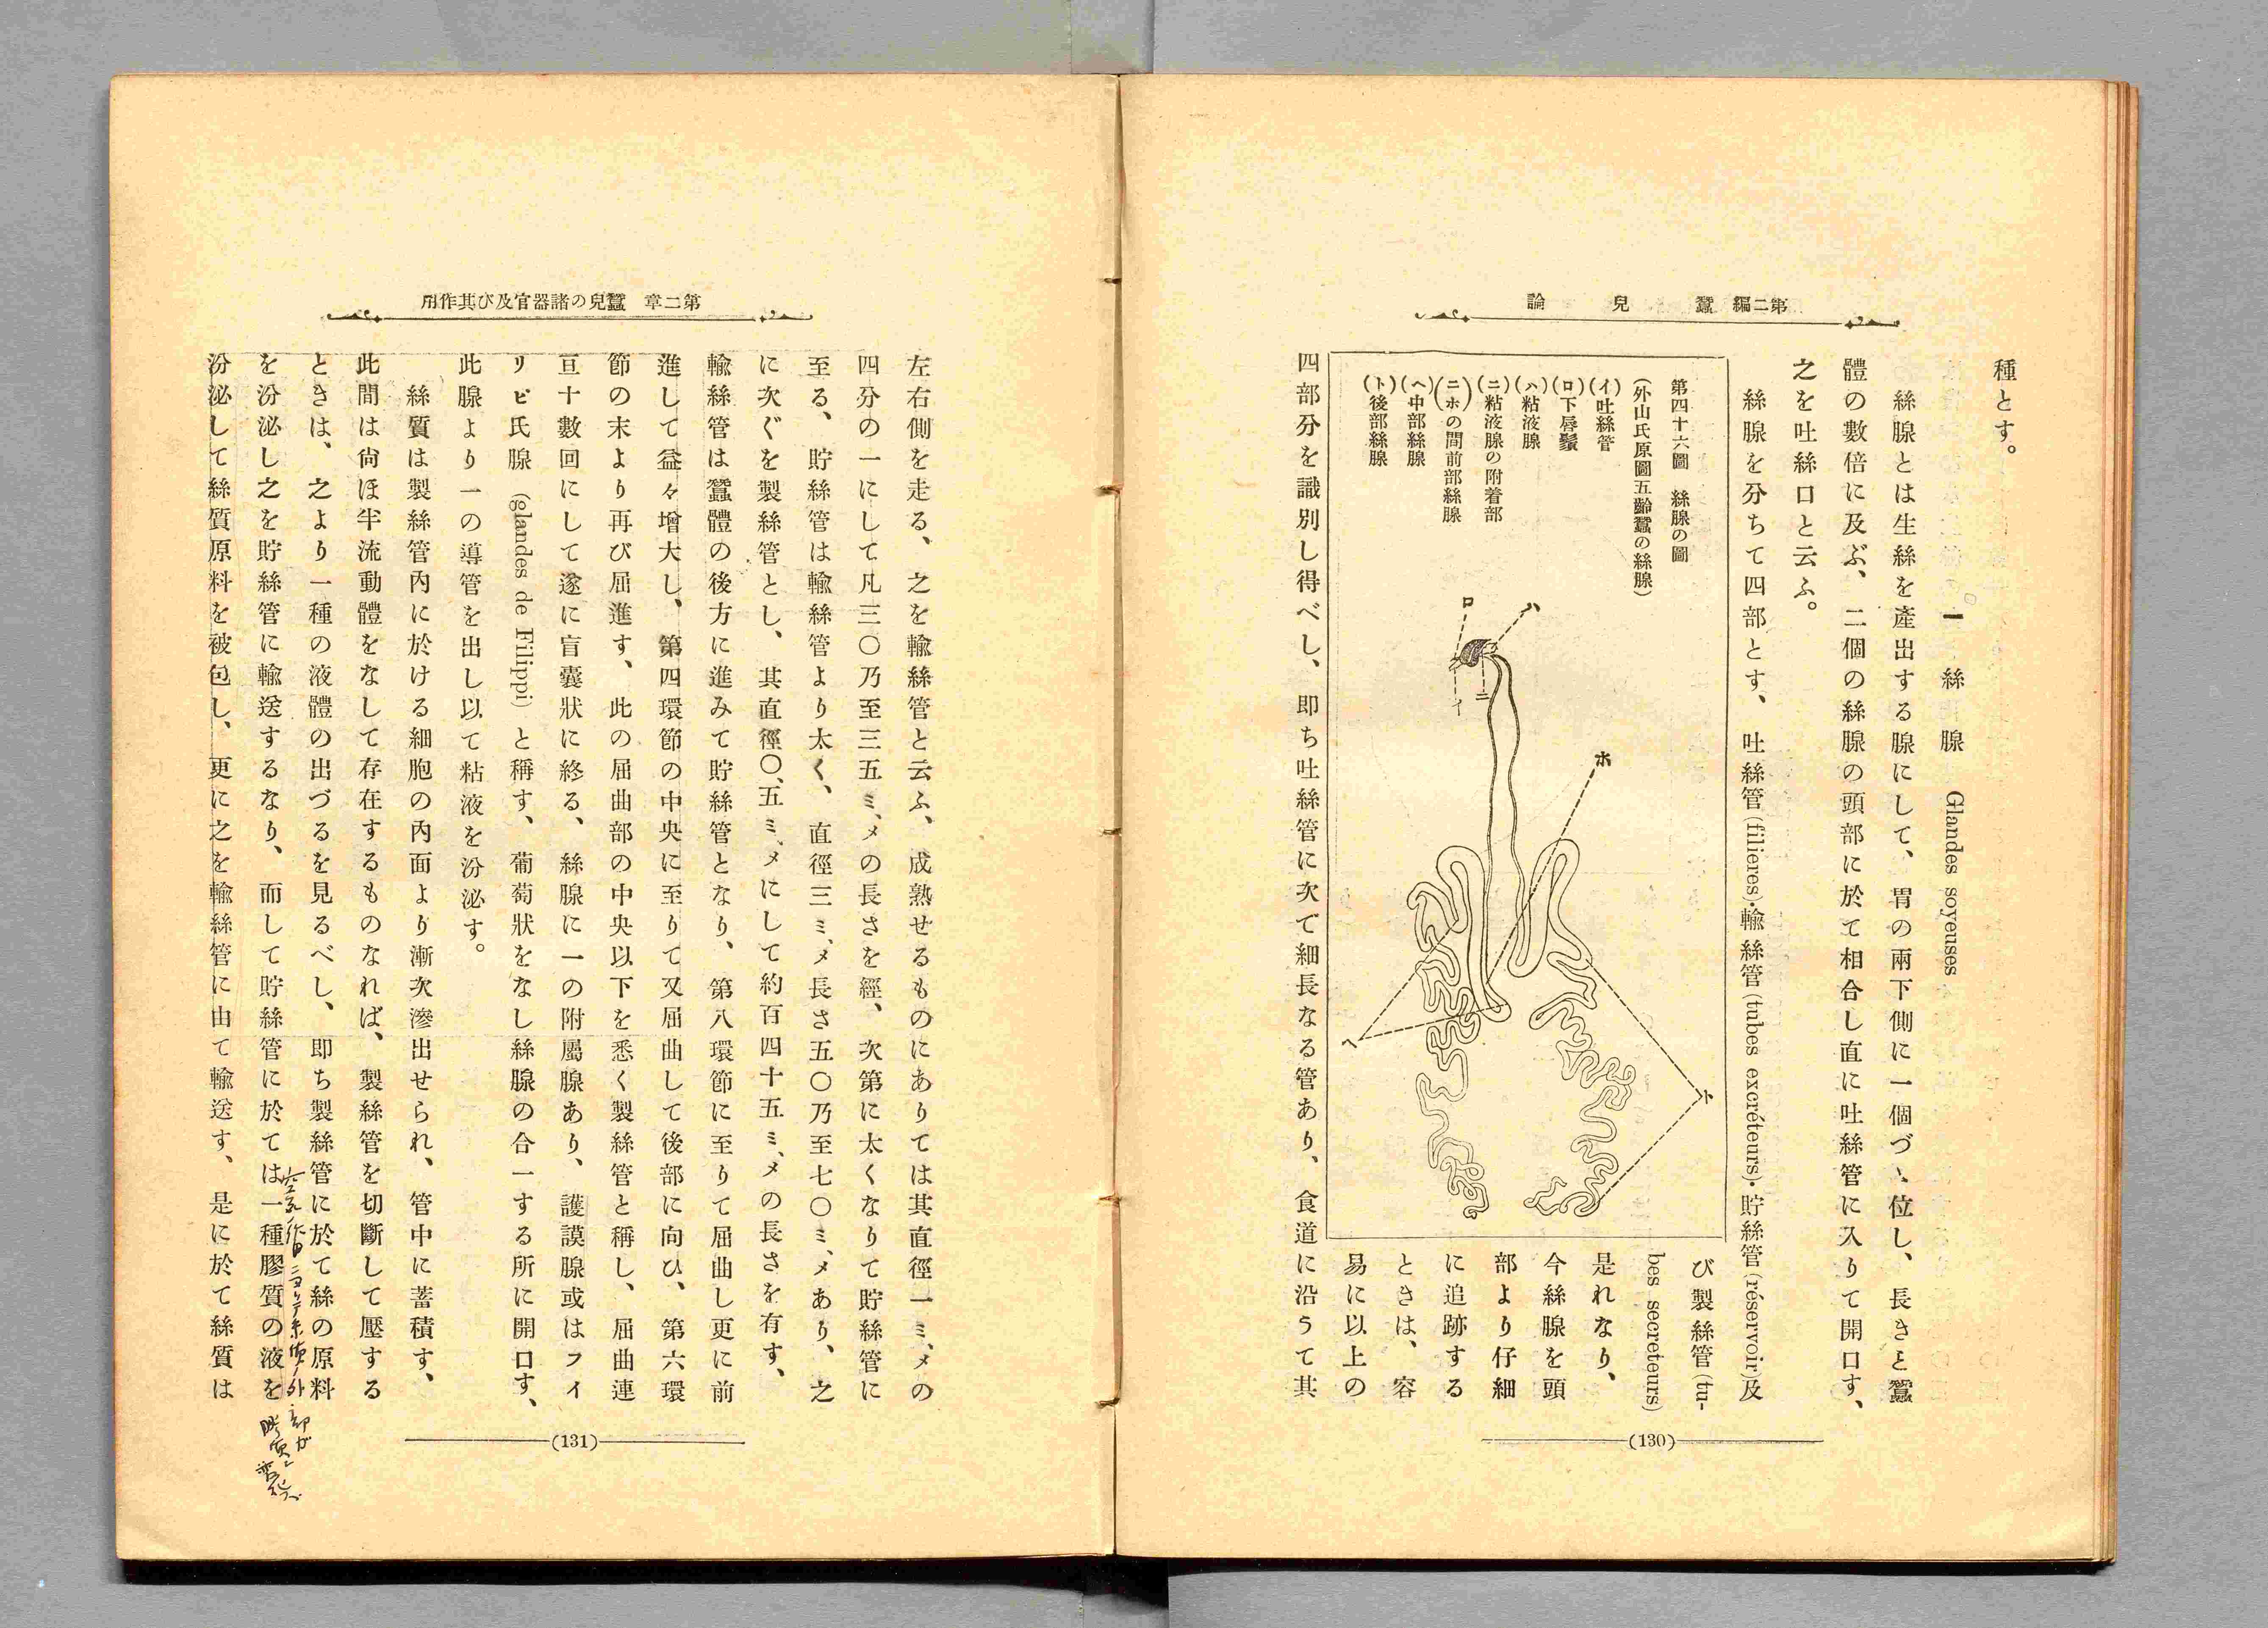 第二編　蠶兒論
種とす。
一　絲腺　Glandes soyeuses
絲腺とは生絲を產出する腺にして、胃の兩下側に一個づゝ位し、長きこと蠶
體の數倍に及ぶ、二個の絲腺の頭部に於て相合し直に吐絲管に入りて開口す、
之を吐絲口と云ふ。
絲腺を分ちて四部とす、吐絲管(filieres)・輸絲管(tubes excréteurs)・貯絲管(réservoir)及
び製絲管(tu-
bes secreteurs)
是れなり、
今絲腺を頭
部より仔細
に追跡する
ときは、容
易に以上の
第四十六圖　絲腺の圖
(外山氏原圖五齡蠶の絲腺)
(イ)吐絲管
(ロ)下唇鬚
(ハ)粘液腺
(ニ)粘液腺の附着部
(ニホ)の間前部絲腺
(ヘ)中部絲腺
(ト)後部絲腺
ロ
ハ
イ
ニ
ホ
ヘ
ト
四部分を識別し得べし、即ち吐絲管に次て細長なる管あり、食道に沿うて其
(130)
第二章　蠶兒の諸器官及び其作用
左右側を走る、之を輸絲管と云ふ、成熟せるものにありては其直徑一ミ、メの
四分の一にして凡三〇乃至三五ミ、メの長さを經、次第に太くなりて貯絲管に
至る、貯絲管は輸絲管より太く、直徑三ミ、メ長さ五〇乃至七〇ミ、メあり、之
に次ぐを製絲管とし、其直徑〇、五ミ、メにして約百四十五ミ、メの長さを有す、
輸絲管は蠶體の後方に進みて貯絲管となり、第八環節に至りて屈曲し更に前
進して益々增大し、第四環節の中央に至りて又屈曲して後部に向ひ、第六環
節の末より再び屈進す、此の屈曲部の中央以下を悉く製絲管と稱し、屈曲連
亘十數回にして遂に盲囊狀に終る、絲腺に一の附屬腺あり、護謨腺或はフイ
リピ氏腺 (glandes de Filippi) と稱す、葡萄狀をなし絲腺の合一する所に開口す、
此腺より一の導管を出し以て粘液を汾泌す。
絲質は製絲管內に於ける細胞の內面より漸次滲出せられ、管中に蓄積す、
此間は尙ほ半流動體をなして存在するものなれば、製絲管を切斷して壓する
ときは、之より一種の液體の出づるを見るべし、即ち製絲管に於て絲の原料
を汾泌し之を貯絲管に輸送するなり、而して貯絲管に於ては一種膠質の液を
汾泌して絲質原料を被包し、更に之を輸絲管に由て輸送す、是に於て絲質は
(131)